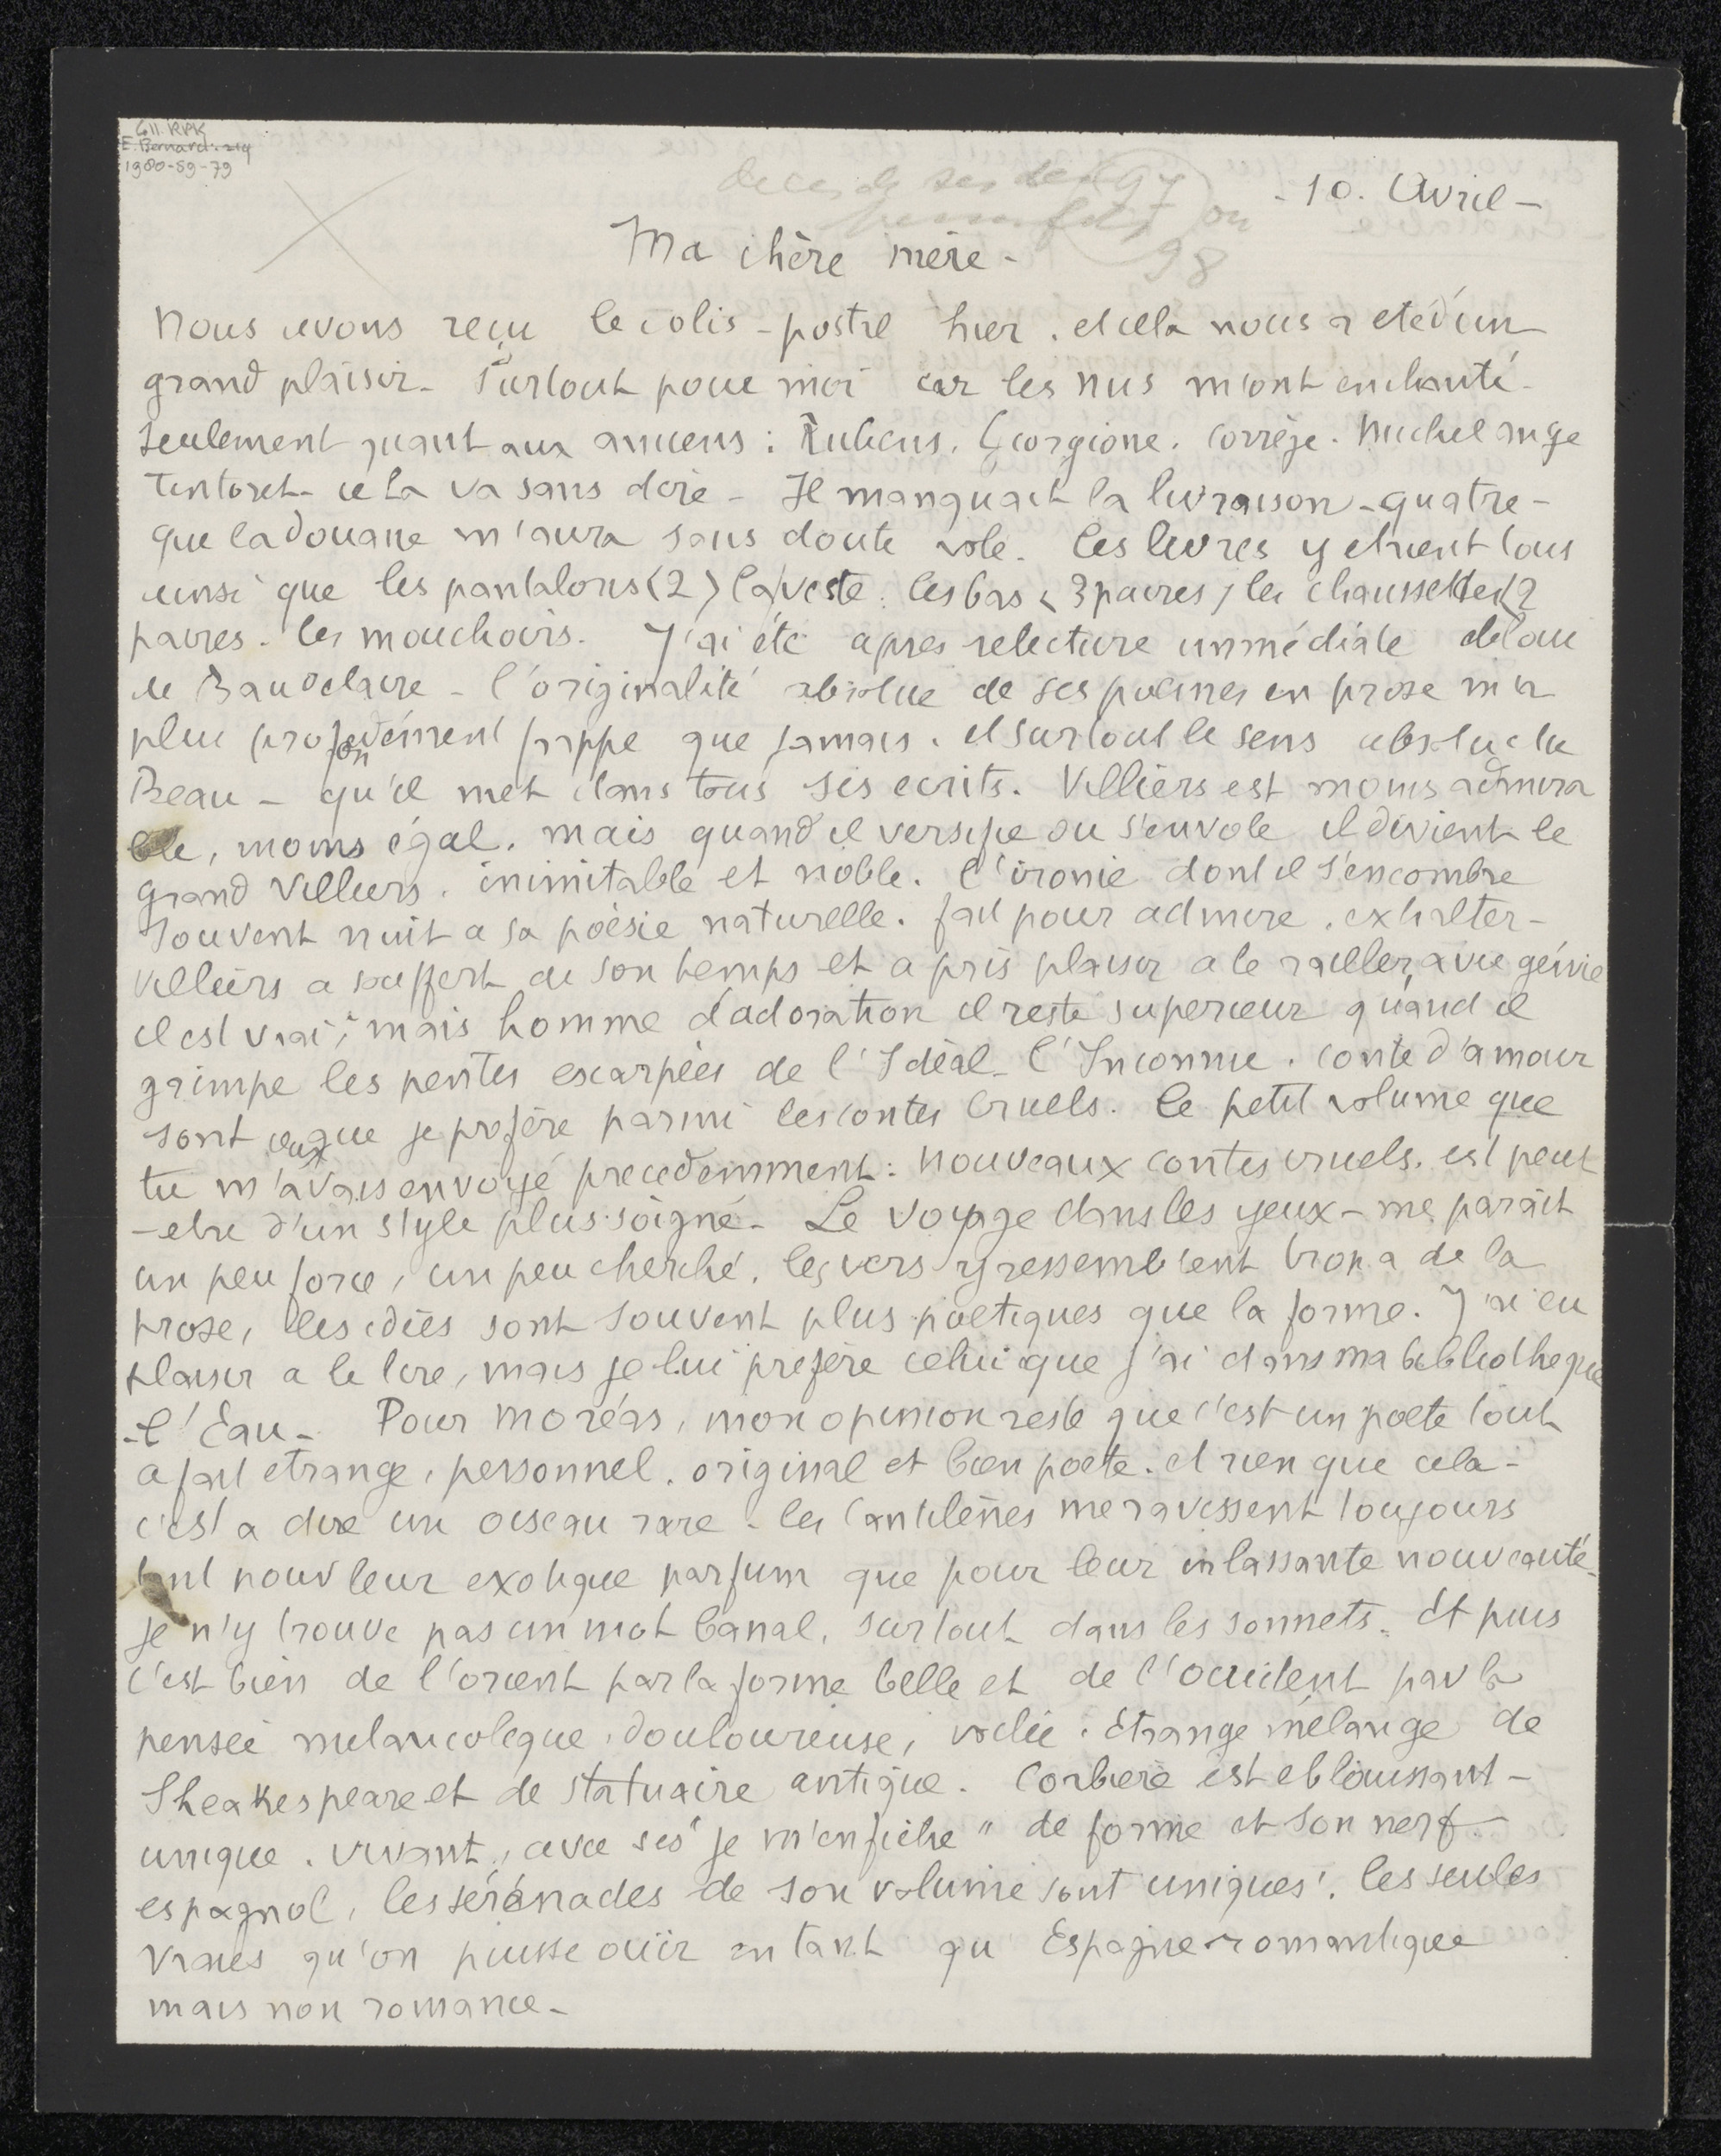 Coll. RPK
E. Bernard. 219
1980-59-79
97
ou
98
- 10. Avril -
Ma chère mère -
Nous avons reçu le colis-postal hier. et cela nous a eté d'un
grand plaisir - Surtout pour moi car les nus m'ont enchanté -
seulement quant aux anciens : Rubens. Georgione. Corrège. Michel ange
Tintoret - cela va sans dire - Il manquait la livraison - quatre -
que la douane m'aura sans doute volé. Les livres y etaient tous
ainsi que les pantalons (2) la veste. les bas (3 paires) les chaussettes (2
paires - les mouchoirs. J'ai été apres relecture immédiate
de Baudelaire - l'originalité absolue de ses poemes en prose m'a
plus profondément frappé que jamais. et surtout le sens absolu du
Beau - qu'il met dans tous ses ecrits. Villiers est moins admira
ble, moins égal. mais quand il versifie ou s'envole il devient le
grand Villiers. inimitable et noble. l'ironie dont il s'encombre
souvent nuit a sa poésie naturelle. fait pour admirer. exhalter -
Villiers a souffert de son temps et a pris plaisir a le railler, avec génie
il est vrai ; mais homme d'adoration il reste superieur quand il
grimpe les pentes escarpées de l'Idéal - l'Inconnue. conte d'amour
sont ceux que je prefère parmi les contes cruels. Le petit volume que
tu m'avais envoyé precedemment : nouveaux contes cruels. est peut
-etre d'un style plus soigné - Le Voyage dans les yeux - me parait
un peu forcé, un peu cherché, les vers y ressemblent trop a de la
prose, les idées sont souvent plus poetiques que la forme. J'ai eu
plaisir a le lire, mais je lui prefère celui que j'ai dans ma bibliotheque
- l'Eau - Pour Moréas, mon opinion reste que c'est un poete tout
a fait etrange, personnel. original et bien poete. et rien que cela -
c'est a dire un oiseau rare - les Cantilènes me ravissent toujours
tant pour leur exotique parfum que pour leur inlassante nouveauté -
je n'y trouve pas un mot banal, surtout dans les sonnets. Et puis
c'est bien de l'orient par la forme belle et de l'occident par la
pensée melancolique, douloureuse, voilée. Etrange mélange de
Sheakespeare et de statuaire antique. Corbiere est eblouissant -
unique. vivant, avec ses "je m'enfiche" de forme et son nerf
espagnol, les sérénades de son volume sont uniques. les seules
vraies qu'on puisse ouïr en tant qu'Espagne romantique
mais non romance -